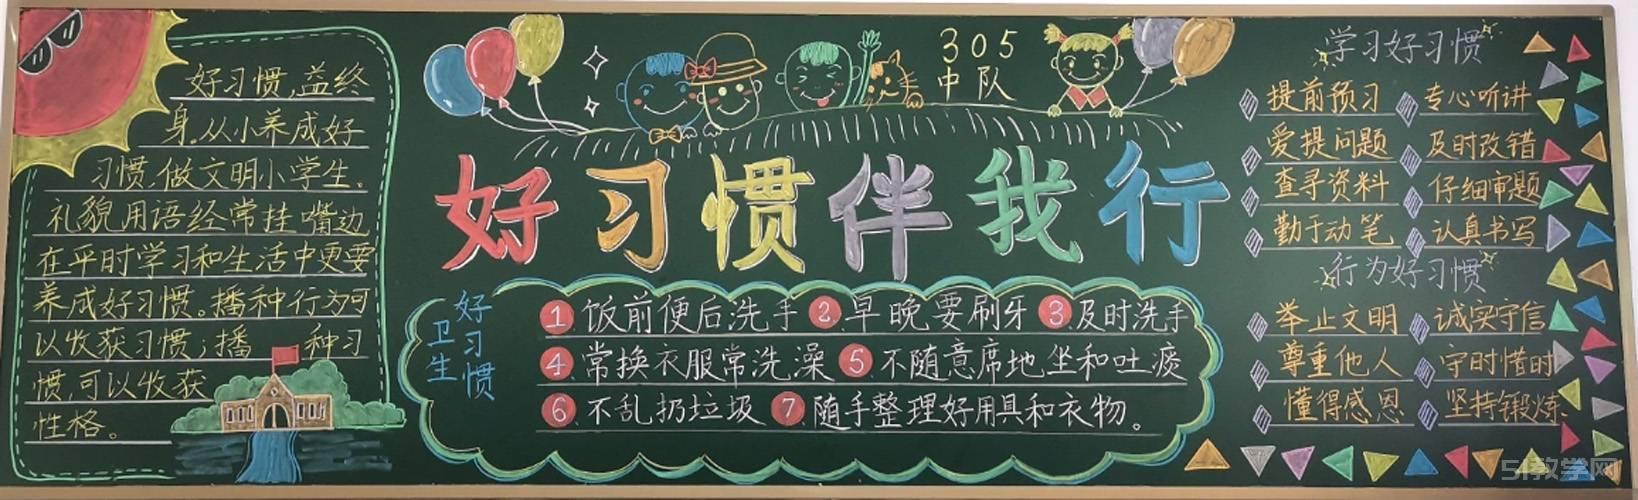 好习惯,益终
身。从小养成好
习惯,做文明小学生。
礼貌用语经常挂嘴边
在平时学习和生活中更要
养成好习惯。播种行为可
以收获习惯;播 种习
惯,可以收获
性格。
305
中队
好习惯伴我行
卫生
好习惯
1、饭前便后洗手 2、早晚要刷牙 3、及时洗手
4、常换衣服常洗澡 5、不随意席地坐和吐痰
6、不乱扔垃圾 7、随手整理好用具和衣物。
学习好习惯
提前预习 专心听讲
爱提问题 及时改错
查寻资料 仔细审题
勤于动笔 认真书写
行为好习惯
举止文明 诚实守信
尊重他人 守时惜时
懂得感恩 坚持锻炼
51教学网